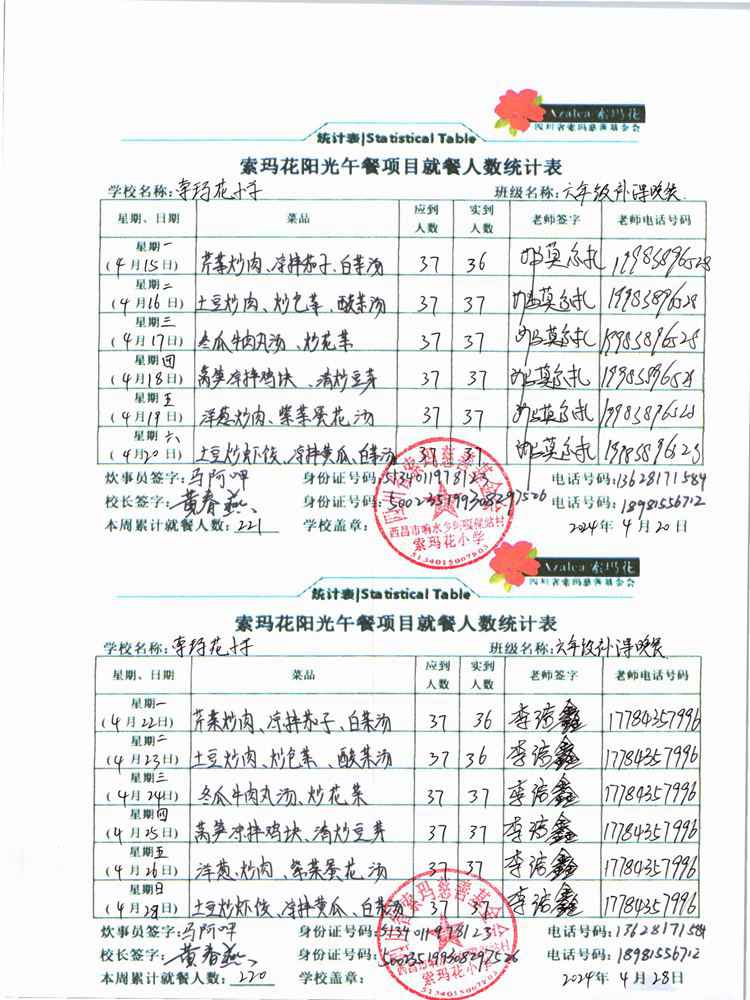 Azalea 索玛花
四川省索玛慈善基金会
统计表|Statistical Table
索玛花阳光午餐项目就餐人数统计表
学校名称:索玛花小学 班级名称:六年级补课晚餐
星期、日期 菜品 应到人数 实到人数 老师签字 老师电话号码
星期一 (4月15日) 芹菜炒肉、凉拌茄子、白菜汤 37 36 19983896528
星期二 (4月16日) 土豆炒肉、炒包菜、酸菜汤 37 37 19983896528
星期三 (4月17日) 冬瓜牛肉丸汤、炒花菜 37 37 19983896528
星期四 (4月18日) 莴笋凉拌鸡块、清炒豆芽 37 37 19983896528
星期五 (4月19日) 洋葱炒肉、紫菜蛋花汤 37 37 19983896528
星期六 (4月20日) 土豆炒虾饺、凉拌黄瓜、白菜汤 37 37 19983896528
炊事员签字:马阿呷 身份证号码:5134011978123 电话号码:13628171584
校长签字:黄春燕 身份证号码:500235199308297526 电话号码:18981556712
本周累计就餐人数:221 学校盖章: 2024年4月20日
索玛花小学
5134015007803
Azalea 索玛花
四川省索玛慈善基金会
统计表|Statistical Table
索玛花阳光午餐项目就餐人数统计表
学校名称:索玛花小学 班级名称:六年级补课晚餐
星期、日期 菜品 应到人数 实到人数 老师签字 老师电话号码
星期一 (4月22日) 芹菜炒肉、凉拌茄子、白菜汤 37 36 17784357996
星期二 (4月23日) 土豆炒肉、炒包菜、酸菜汤 37 36 17784357996
星期三 (4月24日) 冬瓜牛肉丸汤、炒花菜 37 37 17784357996
星期四 (4月25日) 莴笋凉拌鸡块、清炒豆芽 37 37 17784357996
星期五 (4月26日) 洋葱炒肉、紫菜蛋花汤 37 37 17784357996
星期日 (4月28日) 土豆炒虾饺、凉拌黄瓜、白菜汤 37 37 17784357996
炊事员签字:马阿呷 身份证号码:5134011978123 电话号码:13628171584
校长签字:黄春燕 身份证号码:500235199308297526 电话号码:18981556712
本周累计就餐人数:220 学校盖章: 2024年4月28日
索玛花小学
5134015007803